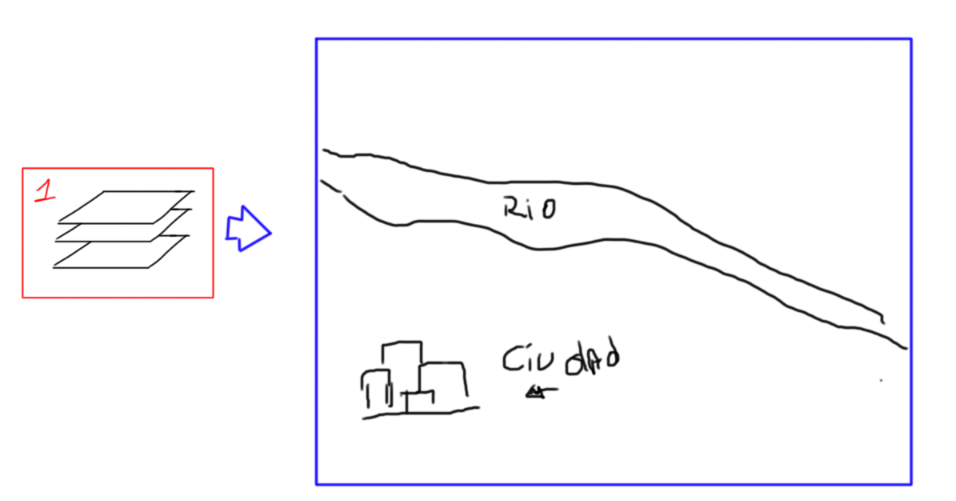 1
Rio
Ciudad